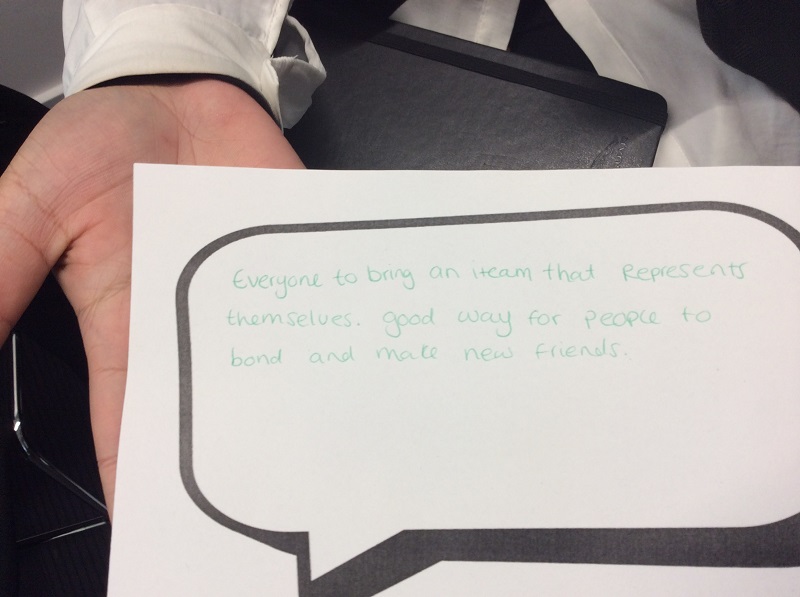 Everyone to bring an iteam that Represents
themselves. good way for people to
bond and make new friends.